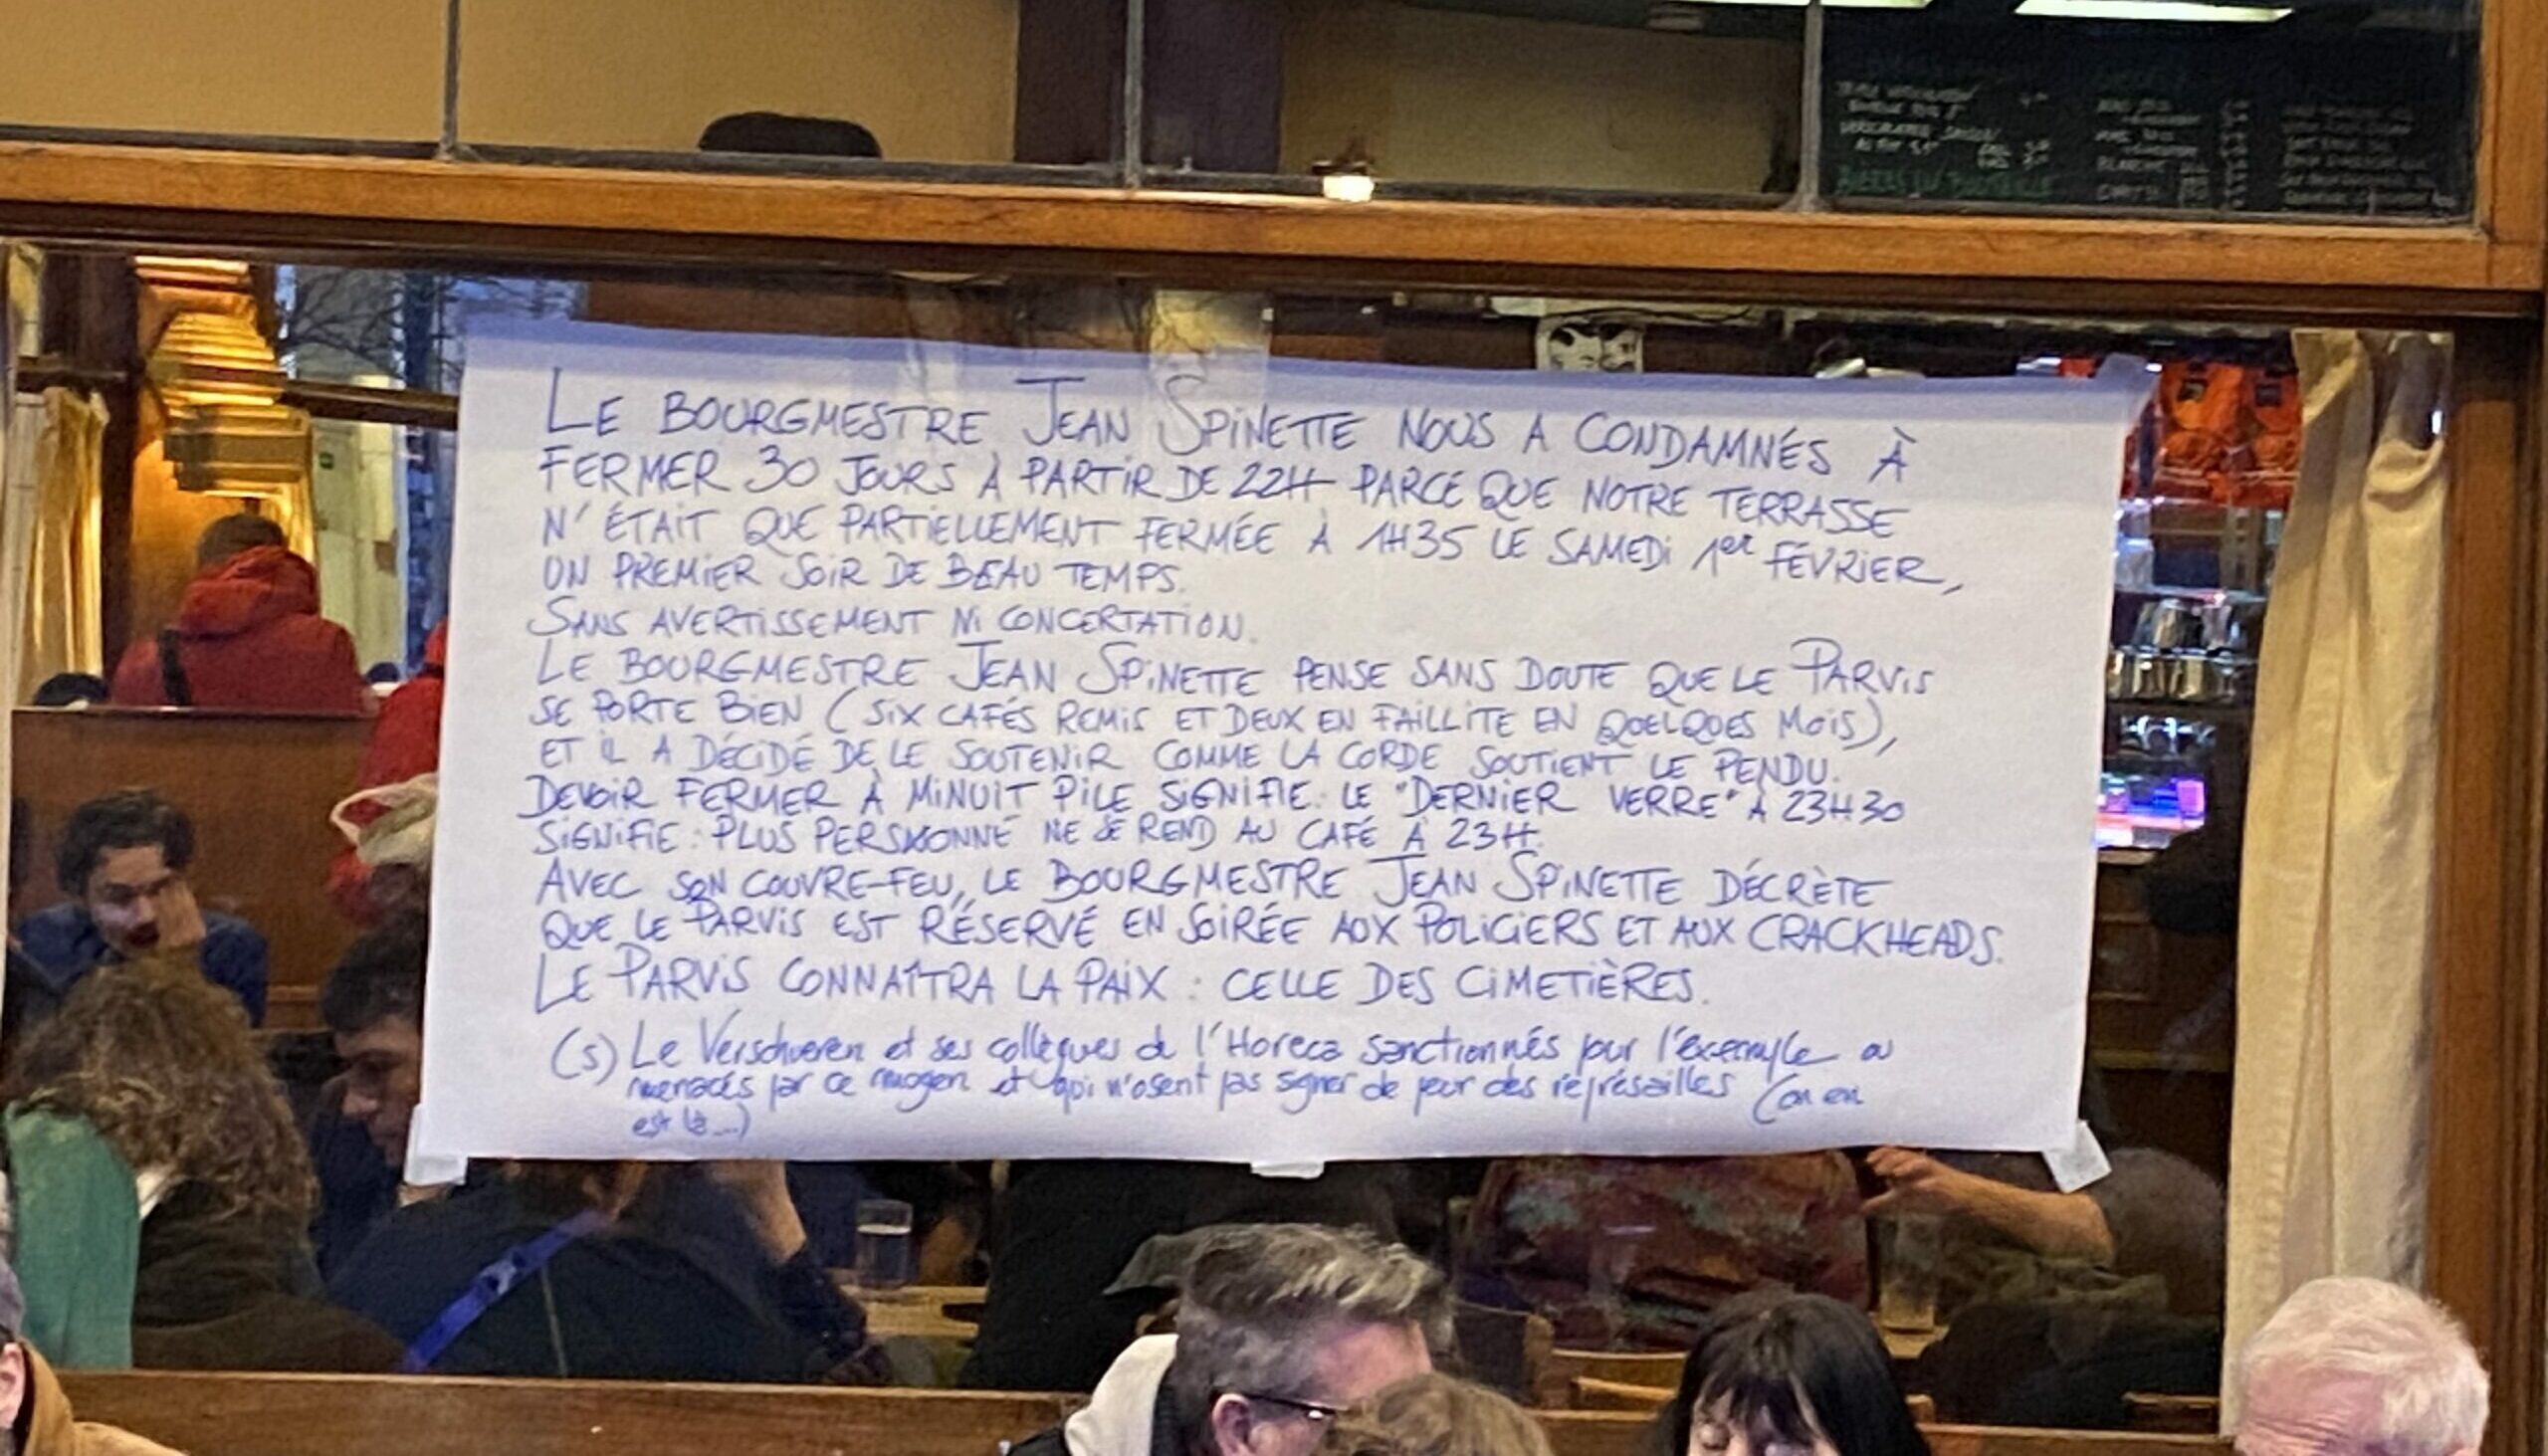 LE BOURGMESTRE JEAN SPINETTE NOUS A CONDAMNÉS À
FERMER 30 JOURS À PARTIR DE 22H PARCE QUE NOTRE TERRASSE
N'ÉTAIT QUE PARTIELLEMENT FERMÉE À 1H35 LE SAMEDI 1er FÉVRIER,
UN PREMIER SOIR DE BEAU TEMPS.
SANS AVERTISSEMENT NI CONCERTATION.
LE BOURGMESTRE JEAN SPINETTE PENSE SANS DOUTE QUE LE PARVIS
SE PORTE BIEN (SIX CAFÉS REMIS ET DEUX EN FAILLITE EN QUELQUES MOIS),
ET IL A DÉCIDÉ DE LE SOUTENIR COMME LA CORDE SOUTIENT LE PENDU.
DEVOIR FERMER À MINUIT PILE SIGNIFIE: LE "DERNIER VERRE" À 23H30
SIGNIFIE: PLUS PERSONNE NE SE REND AU CAFÉ À 23H.
AVEC SON COUVRE-FEU, LE BOURGMESTRE JEAN SPINETTE DÉCRÈTE
QUE LE PARVIS EST RÉSERVÉ EN SOIRÉE AUX POLICIERS ET AUX CRACKHEADS.
LE PARVIS CONNAÎTRA LA PAIX : CELLE DES CIMETIÈRES.
(s) Le Verschueren et ses collègues de l'Horeca sanctionnés pour l'exemple ou
menacés par ce moyen et qui n'osent pas signer de peur des représailles (on en
est là...)